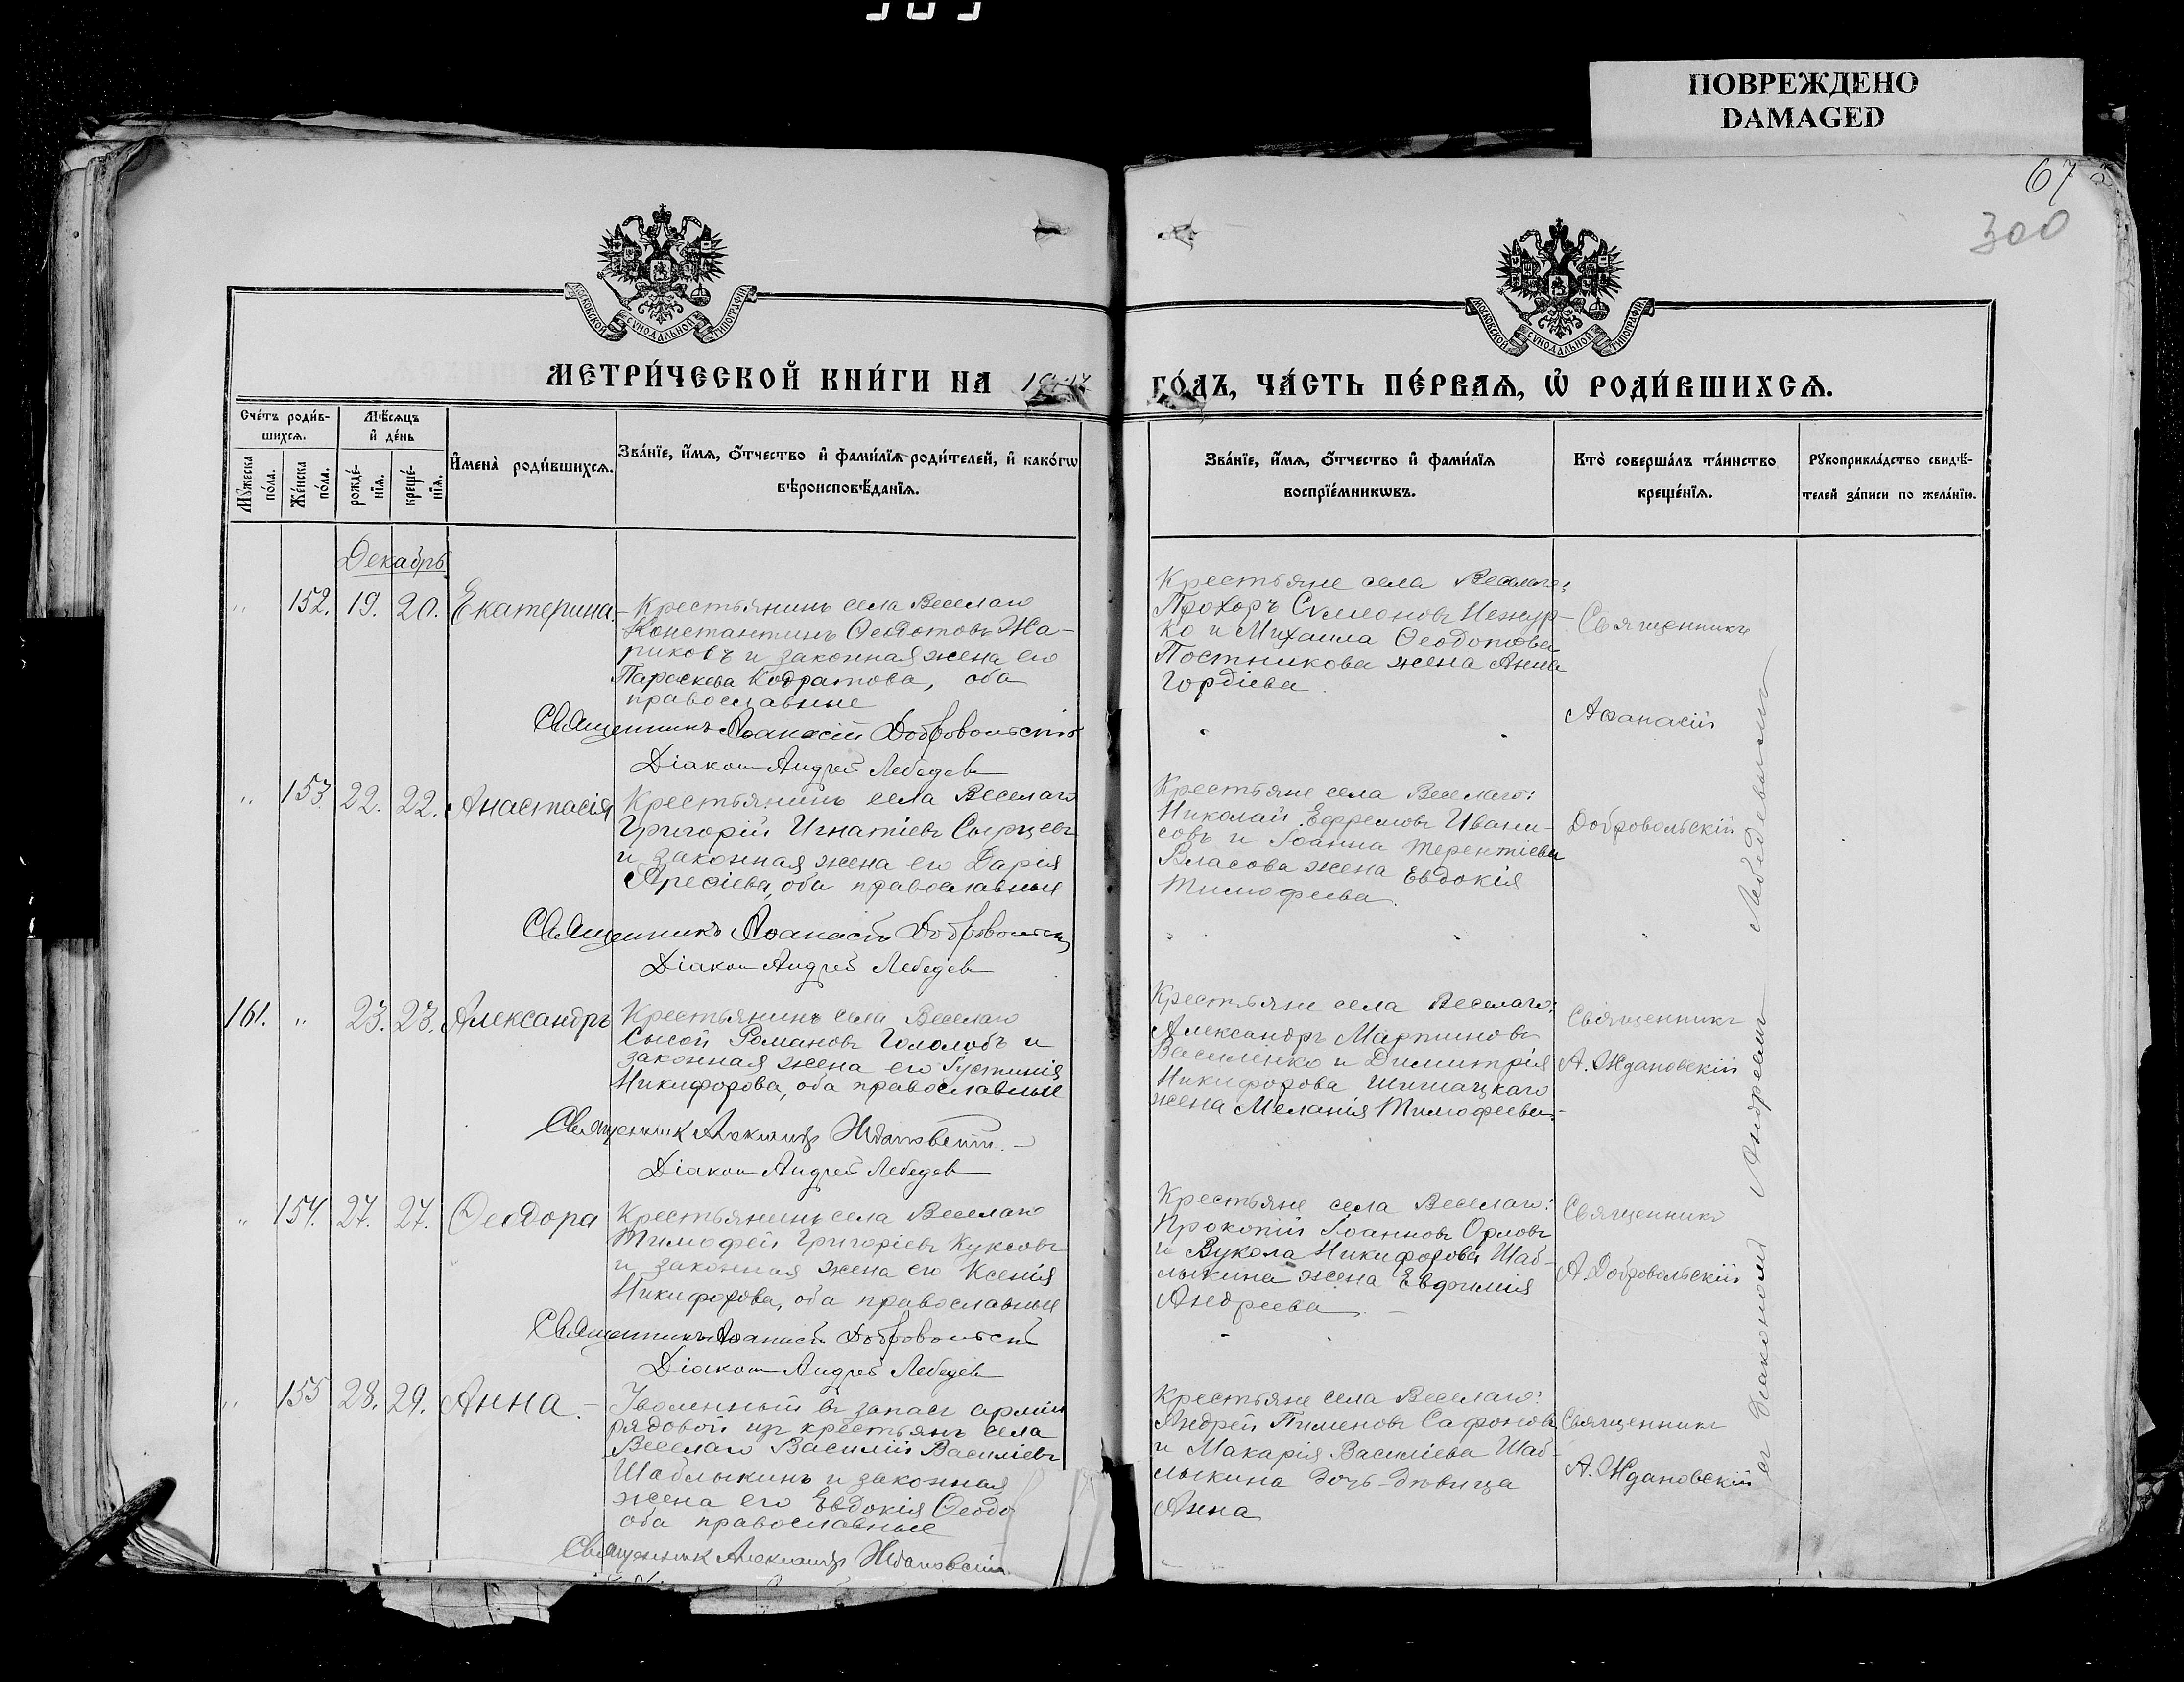 ПОВРЕЖДЕНО
DAMAGED
67
300
МОСКОВСКОЙ СѴНОДАЛЬНОЙ ТИПОГРАФІИ
МОСКОВСКОЙ СѴНОДАЛЬНОЙ ТИПОГРАФІИ
МЕТРИ́ЧЕСКОЙ КНИ́ГИ НА
ГО́ДЪ, ЧА́СТЬ ПЕ́РВАѦ, Ѡ҆ РОДИ́ВШИХСѦ.
Сче́тъ роди́в-
шихсѧ.
Мѣ́сѧцъ
и҆ де́нь
Мꙋ́жеска
по́ла.
Же́нска
по́ла.
рожде́-
нїѧ.
креще́-
нїѧ.
И҆мена̀ роди́вшихсѧ.
Зва́нїе, и҆́мѧ, ѻ҆́тчество и҆ фами́лїѧ роди́телей, и҆ како́гѡ
вѣроисповѣ́данїѧ.
Зва́нїе, и҆́мѧ, ѻ҆́тчество и҆ фами́лїѧ
воспрїе́мникѡвъ.
Кто̀ соверша́лъ та́инство
креще́нїѧ.
Рꙋкоприкла́дство свидѣ́-
телей за́писи по жела́нїю.
Декабрь
" 152. 19. 20. Екатерина. – Крестьянинъ села Веселаго
Константинъ Ѳеодотовъ Жа-
риковъ и законная жена его
Параскева Кодратова, оба
православные
Священникъ Аѳанасій Добровольскій
Діаконъ Андрей Лебедевъ
Крестьяне села Веселаго:
Прохоръ Сѵмеоновъ Нежур-
ко и Михаила Ѳеодотова
Постникова жена Анна
Гордіева.
Священникъ
Аѳанасій
Добровольскій
" 153. 22. 22. Анастасія Крестьянинъ села Веселаго
Григорій Игнатіевъ Сырцевъ
и законная жена его Дарія
Арефіева, оба православные
Священникъ Аѳанасій Добровольскій
Діаконъ Андрей Лебедевъ
Крестьяне села Веселаго:
Николай Ефремовъ Ивани-
совъ и Іоанна Терентіева
Власова жена Евдокія
Тимофеева.
161. " 23. 23. Александръ Крестьянинъ села Веселаго
Сысой Романовъ Гололобъ и
законная жена его Іустинія
Никифорова, оба православные
Священник Александр Ждановскій. –
Діаконъ Андрей Лебедевъ
Крестьяне села Веселаго:
Александръ Мартиновъ
Василенко и Димитрія
Никифорова Шишацкаго
жена Меланія Тимофеева. –
Священникъ
А. Ждановскій
" 154. 27. 27. Ѳеодора Крестьянинъ села Веселаго
Тимофей Григоріевъ Куксовъ
и законная жена его Ксенія
Никифорова, оба православные
Священникъ Аѳанасій Добровольскій
Діаконъ Андрей Лебедевъ
Крестьяне села Веселаго:
Прокопій Іоанновъ Орловъ
и Вукола Никифорова Шаб-
лыкина жена Евфимія
Андреева. –
Священникъ
А. Добровольскій
" 155 28. 29. Анна. – Уволенный въ запасъ арміи
рядовой изъ крестьянъ села
Веселаго Василій Василіевъ
Шаблыкинъ и законная
жена его Евдокія Ѳеодо
оба православные
Священник Александр Ждановскій
Крестьяне села Веселаго:
Андрей Пименовъ Сафоновъ
и Макарія Василіева Шаб-
лыкина дочь-дѣвица
Анна
Священникъ
А. Ждановскій
съ діакономъ Андреемъ Лебедевымъ